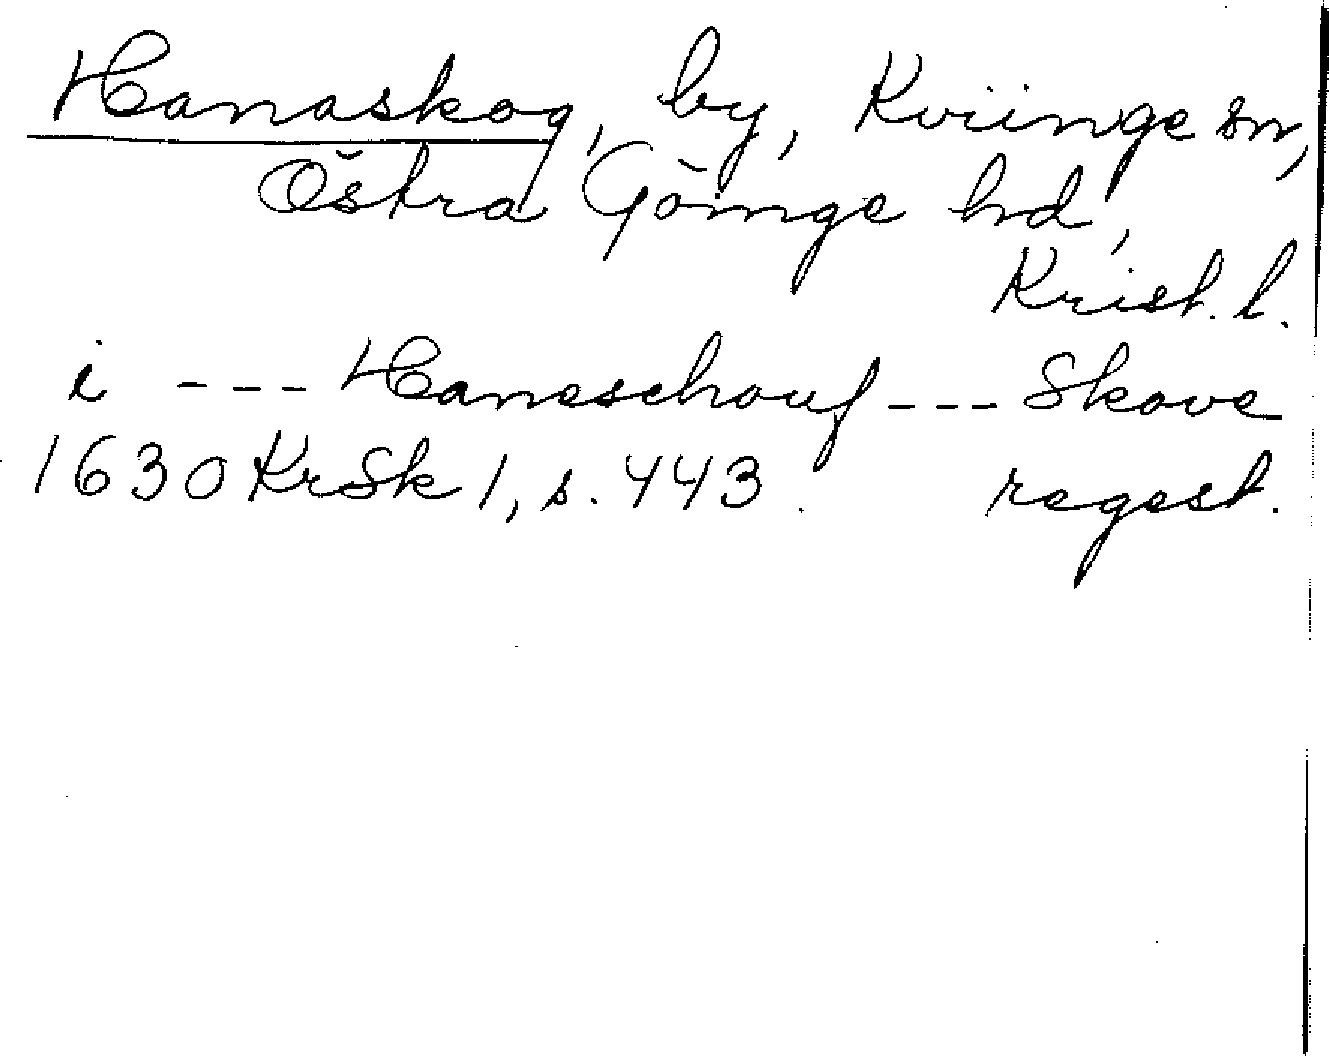 Hanaskog, by, Kviinge sn,
Östra Göinge hd,
Krist. l.
i --- Haneschouf --- Skove
1630 KrSk 1, s. 443. regest.